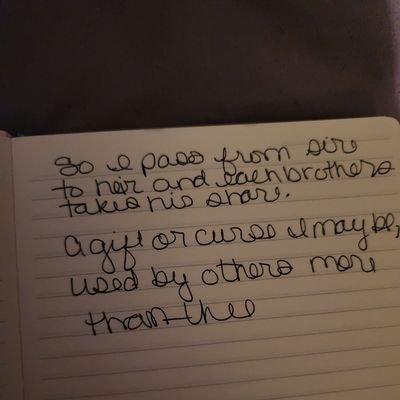 So I pass from sire
to heir and each brothers
takes his share.
A gift or curse I may be,
used by others more
than thee